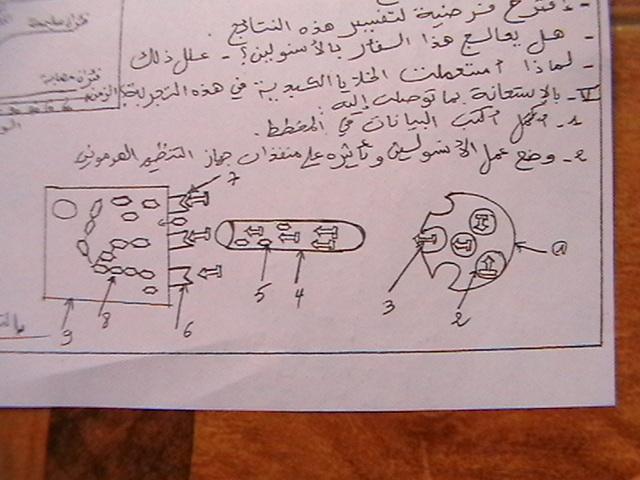 فئران سليمة
فئران مصابة
الزمن
- اقترح فرضية لتفسير هذه النتائج
- هل يعالج هذا السفار بالأنسولين؟ - علل ذلك
- لماذا استعملت الخلايا الكبدية في هذه التجربة
IV- بالاستعانة بما توصلت إليه:
1- أكتب البيانات في المخطط.
2- وضح عمل الأنسولين وتأثيره على منفذات جهاز التنظيم الهرموني
7
1
5
4
3
2
6
8
9